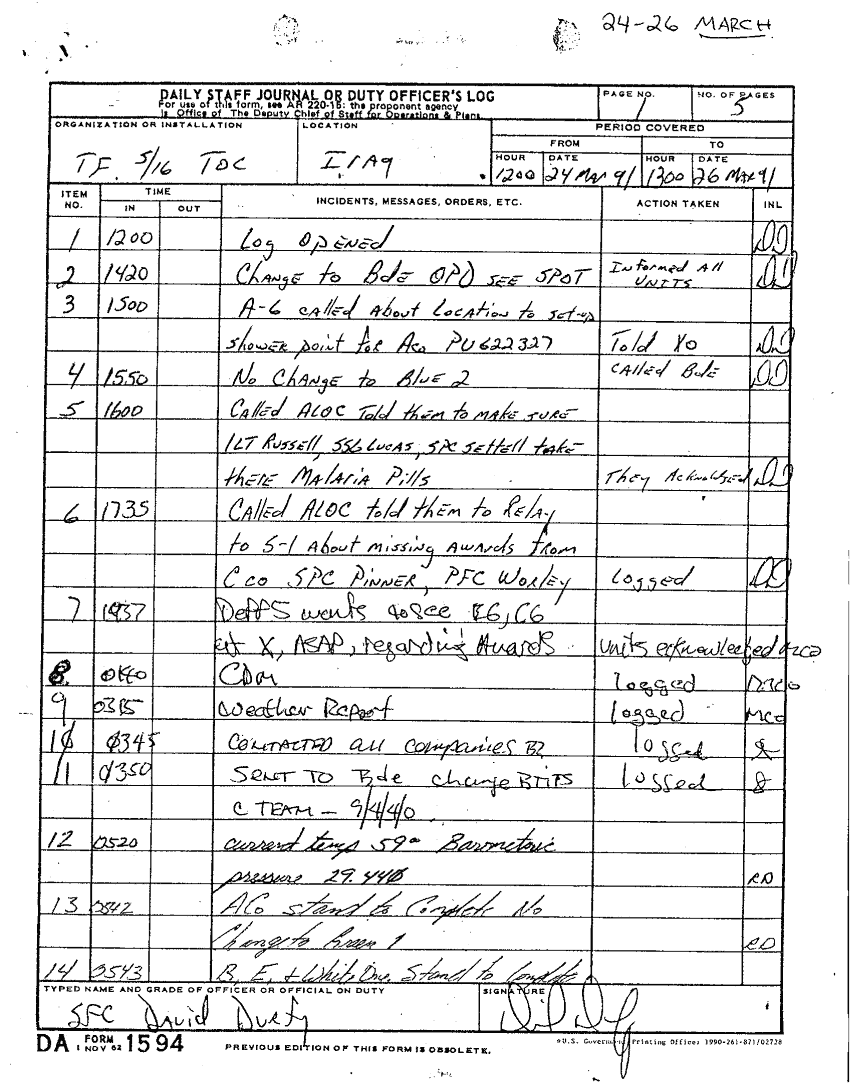 24-26 MARCH
DAILY STAFF JOURNAL OR DUTY OFFICER'S LOG
For use of this form, see AR 220-15; the proponent agency
is Office of The Deputy Chief of Staff for Operations & Plans.
PAGE NO. 1
NO. OF PAGES 5
ORGANIZATION OR INSTALLATION
TF 5/16 TOC
LOCATION
Iraq
PERIOD COVERED
FROM TO
HOUR DATE HOUR DATE
1200 24 Mar 91 1200 26 Mar 91
ITEM NO. TIME IN OUT INCIDENTS, MESSAGES, ORDERS, ETC. ACTION TAKEN INL
1 1200 Log OPENED DD
2 1420 Change to Bde OPO SEE SPOT Informed All UNITS DD
3 1500 A-6 called About Location to set-up
shower point for Aco PU622327 Told XO DD
4 1550 No Change to Blue 2 CAlled Bde DD
5 1600 Called ALOC Told them to MAKE SURE
1LT RUSSELL, SSG LUCAS, SPC SETTELL take
thERE Malaria Pills They Acknowlged DD
6 1735 CAlled ALOC told them to Relay
to S-1 About missing Awards From
C co SPC PINNER, PFC Worley logged DD
7 1937 wants to see C6
at X, ASAP, regarding Awards units acknowledged
8. CDM logged
9 Weather Report logged
10 0345 CONTACTED all companies logged
11 0350 SENT TO Bde change logged
C TEAM - 9/4/4/0
12 0520 current temp 59° Barometeric
pressure 29.440 RD
13 0542 ACo stand to Complete No
Change to Green 1 RD
14 0543 B, E, + White One. Stand to Complete
TYPED NAME AND GRADE OF OFFICER OR OFFICIAL ON DUTY
SFC David
SIGNATURE
DA FORM 1 NOV 62 1594
PREVIOUS EDITION OF THIS FORM IS OBSOLETE.
*U.S. Government Printing Office: 1990-261-871/02728